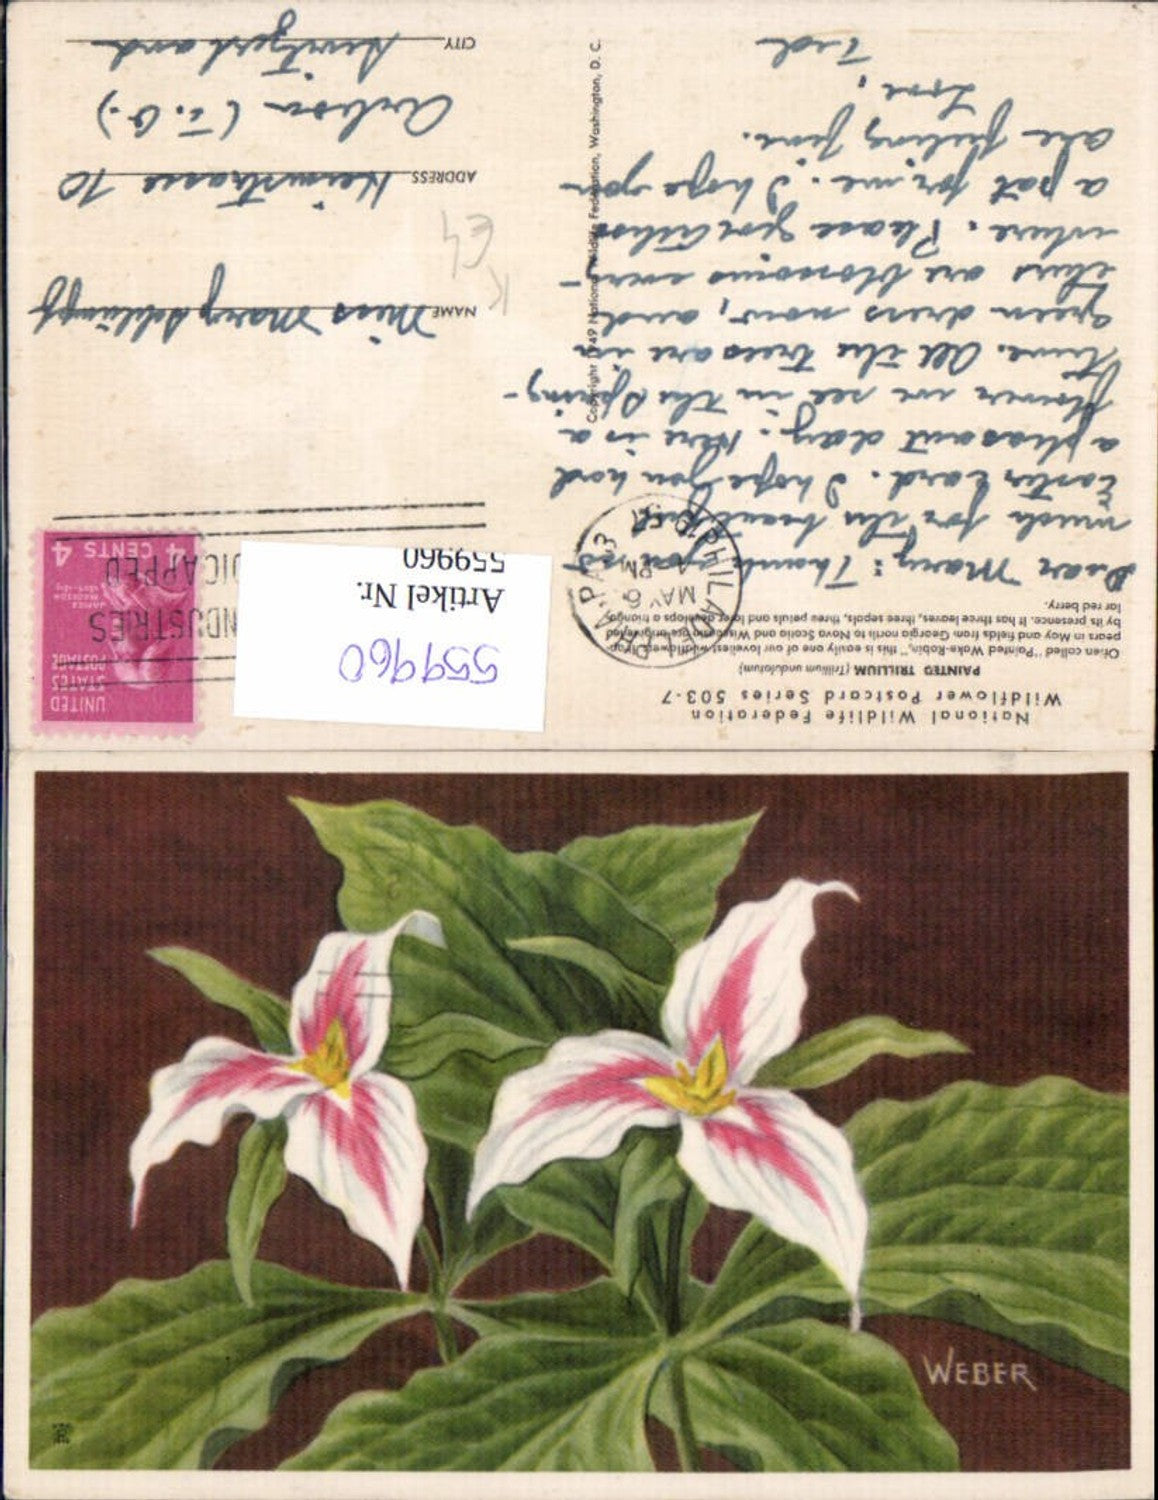 National Wildlife Federation
Wildflower Postcard Series 503-7
PAINTED TRILLIUM (Trillium undulatum)
Often called "Painted Wake-Robin," this is easily one of our loveliest wildflowers. It ap-
pears in May and fields from Georgia north to Nova Scotia and Wisconsin are brightened
by its presence. It has three leaves, three sepals, three petals and later develops a triangu-
lar red berry.
Dear Mary: Thank you very
much for the beautiful
Easter card. I hope you had
a pleasant day. Here is a
flower we see in the Spring-
time. All the trees are in
green dress now, and
there are blossoms every-
where. Please give
a pat for me. I hope you
are feeling fine.
Love,
Ted
Copyright 1949 National Wildlife Federation, Washington, D. C.
PHILADELPHIA, PA.
MAY 6
PM
UNITED
STATES
POSTAGE
JAMES
MADISON
4 CENTS 4
559960
Artikel Nr.
559960
NAME Miss Mary Schlumpf
ADDRESS Heimstrasse 10
Arbon (T.G.)
CITY Switzerland
K
E4
WEBER